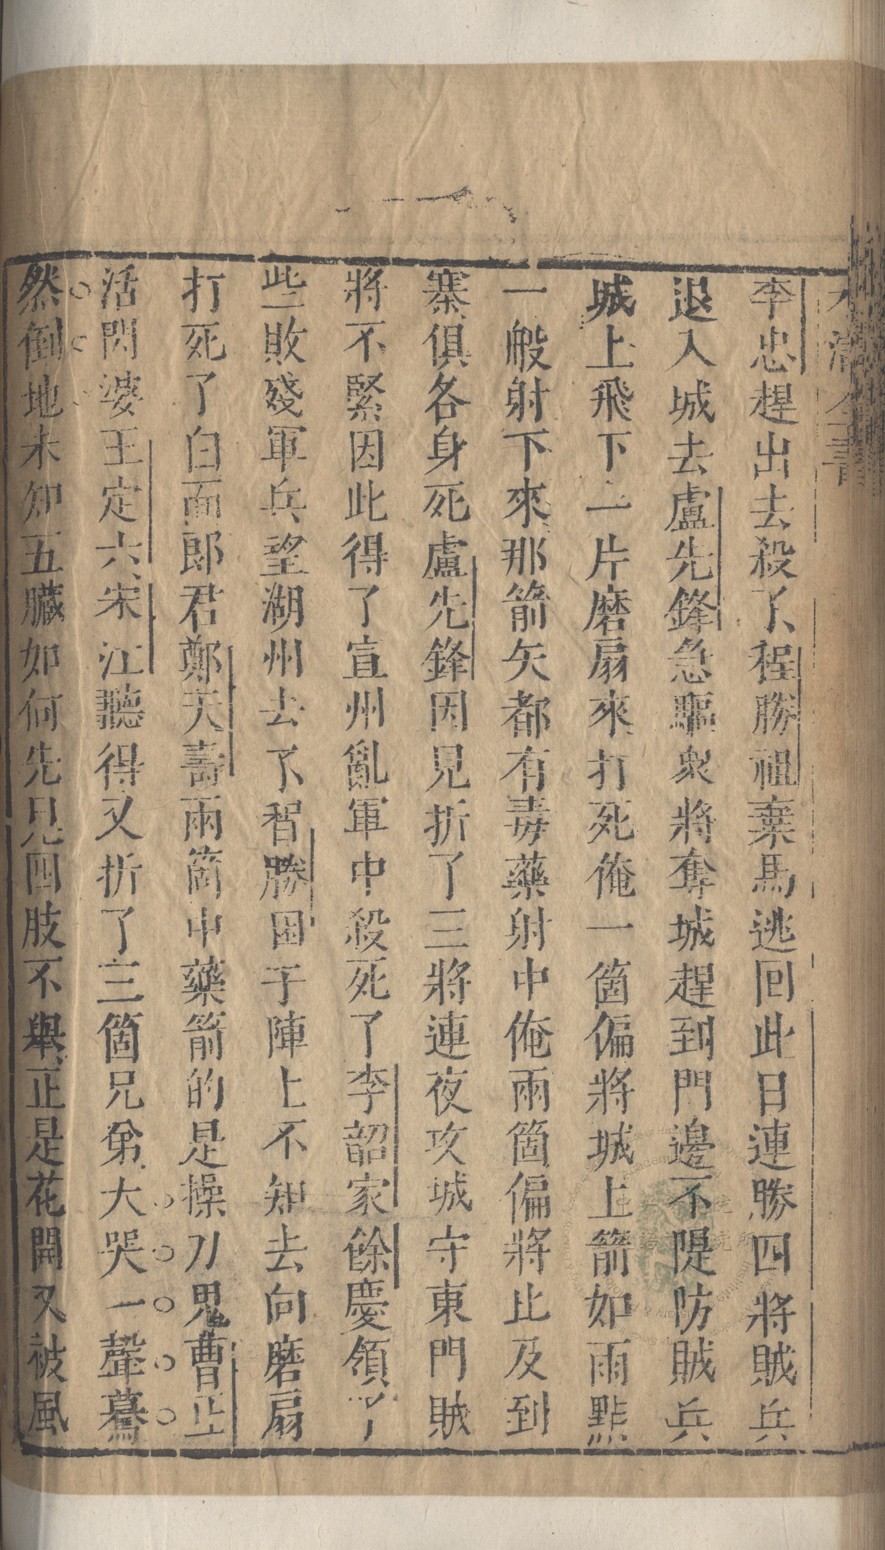 李忠趕出去殺了程勝祖棄馬逃回此日連勝四將賊兵
退入城去盧先鋒急驅衆將奪城趕到門邊不隄防賊兵
城上飛下一片磨扇來打死俺一箇偏將城上箭如雨點
一般射下來那箭矢都有毒藥射中俺兩箇偏將比及到
寨俱各身死盧先鋒因見折了三將連夜攻城守東門賊
將不緊因此得了宣州亂軍中殺死了李韶家餘慶領了
些敗殘軍兵望湖州去了智勝困于陣上不知去向磨扇
打死了白面郎君鄭天壽兩箇中藥箭的是操刀鬼曹正
活閃婆王定六宋江聽得又折了三箇兄弟大哭一聲驀
然倒地未知五臟如何先見四肢不舉正是花開又被風